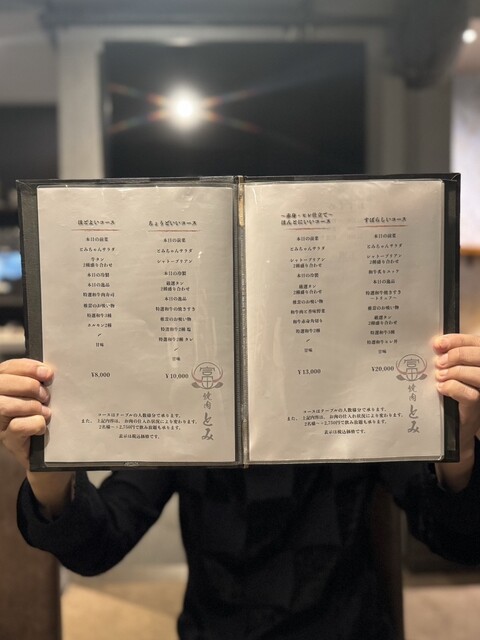 ほどよいコース
本日の前菜
とみちゃんサラダ
牛タン
2種盛り合わせ
本日の冷製
本日の逸品
特選和牛肉寿司
椎茸のお吸い物
特選和牛3種
ホルモン2種
〆
甘味
¥8,000
ちょうどいいコース
本日の前菜
とみちゃんサラダ
シャトーブリアン
2種盛り合わせ
本日の冷製
厳選タン
2種盛り合わせ
本日の逸品
特選和牛の焼きすき
椎茸のお吸い物
特選和牛2種 塩
特選和牛2種 タレ
〆
甘味
¥10,000
コースはテーブルの人数様分で承ります。
また、上記内容は、お肉の仕入れ状況により変わります。
2名様〜 2,750円で飲み放題も承ります。
表示は税込価格です。
宮田
焼肉 とみ
ほんとにいいコース
本日の前菜
とみちゃんサラダ
シャトーブリアン
2種盛り合わせ
本日の冷製
厳選タン
3種盛り合わせ
本日の逸品
特選和牛の焼きすき
椎茸のお吸い物
特選和牛3種
〆
甘味
¥13,000
すばらしいコース
本日の前菜
とみちゃんサラダ
シャトーブリアン
2種盛り合わせ
本日の冷製
本日の逸品
特選和牛焼きすき
〜トリュフ〜
椎茸のお吸い物
厳選タン
2種盛り合わせ
特選和牛3種
〆
甘味
¥20,000
コースはテーブルの人数様分で承ります。
また、上記内容は、お肉の仕入れ状況により変わります。
2名様〜 2,750円で飲み放題も承ります。
表示は税込価格です。
宮田
焼肉 とみ